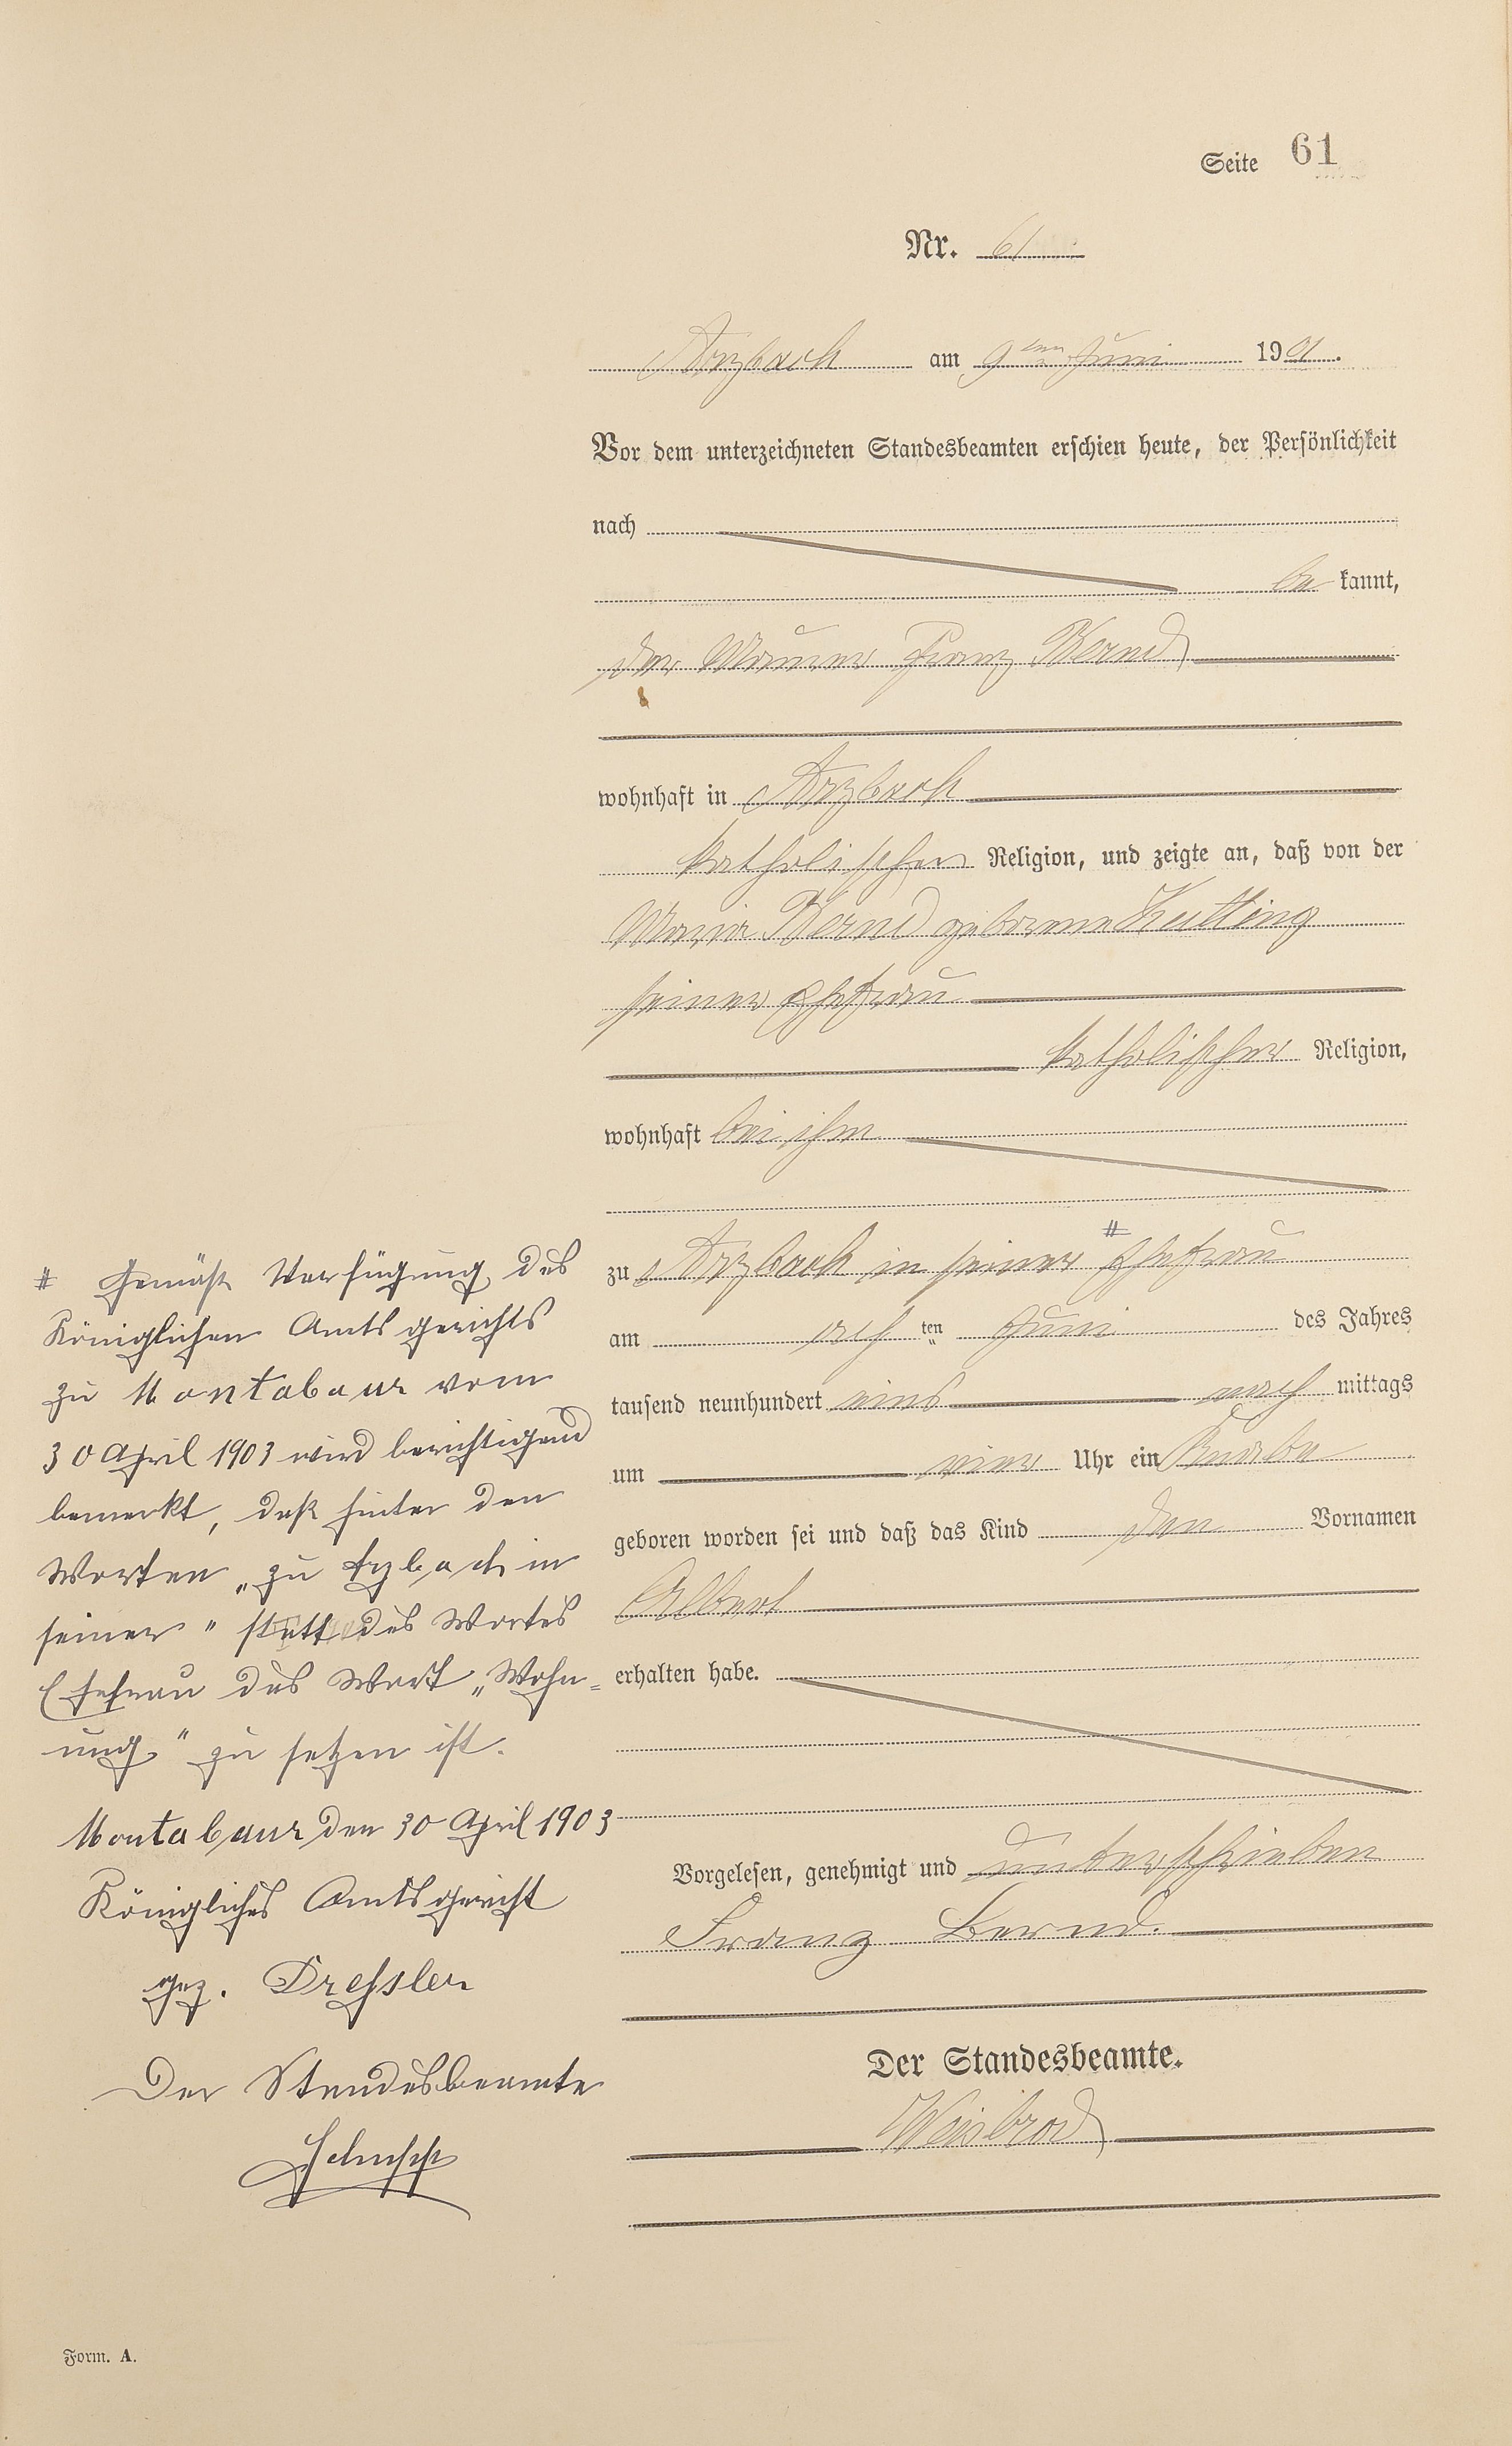 Seite 61
Nr. 61
Arzbach am 9ten Juni 1901.
Vor dem unterzeichneten Standesbeamten erschien heute, der Persönlichkeit
nach
be kannt,
der Maurer Franz Bernd
wohnhaft in Arzbach
katholischer Religion, und zeigte an, daß von der
Maria Bernd geborene
seiner Ehefrau
katholischer Religion,
wohnhaft bei ihm
zu Arzbach in seiner # Ehefrau
am ach ten Juni des Jahres
tausend neunhundert eins nach mittags
um vier Uhr ein Knabe
geboren worden sei und daß das Kind den Vornamen
Albert
erhalten habe.
Vorgelesen, genehmigt und unterschrieben
Franz Bernd.
Der Standesbeamte.
Weisbrod
# Gemäß Verfügung des
Königlichen Amtsgerichts
zu Montabaur vom
30 April 1903 wird berichtigend
bemerkt, daß hinter den
Worten „zu Arzbach in
seiner" statt des Wortes
Ehefrau das Wort „Wohn=
ung" zu setzen ist.
Montabaur den 30 April 1903
Königliches Amtsgericht
gez. Dressler
Der Standesbeamte
Form. A.